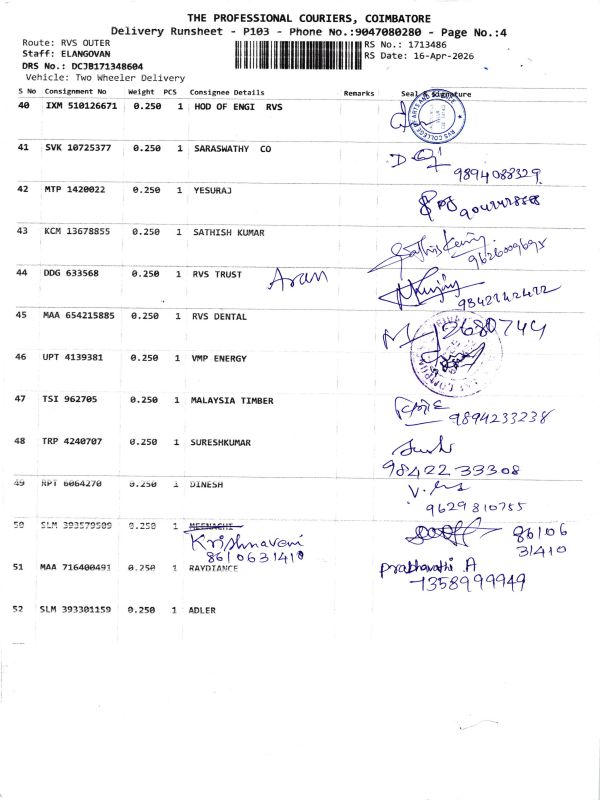 THE PROFESSIONAL COURIERS, COIMBATORE
Delivery Runsheet - P103 - Phone No.:9047080280 - Page No.:4
Route: RVS OUTER
RS No.: 1713486
Staff: ELANGOVAN
RS Date: 16-Apr-2026
DRS No.: DCJB171348604
Vehicle: Two Wheeler Delivery
S No Consignment No Weight PCS Consignee Details Remarks Seal & Signature
40 IXM 510126671 0.250 1 HOD OF ENGI RVS
41 SVK 10725377 0.250 1 SARASWATHY CO
9894088329
42 MTP 1420022 0.250 1 YESURAJ
43 KCM 13678855 0.250 1 SATHISH KUMAR
9626009695
44 DDG 633568 0.250 1 RVS TRUST Aran
9842242422
45 MAA 654215885 0.250 1 RVS DENTAL
46 UPT 4139381 0.250 1 VMP ENERGY
47 TSI 962705 0.250 1 MALAYSIA TIMBER
9894233238
48 TRP 4240707 0.250 1 SURESHKUMAR
9842233308
49 RPT 6064270 0.250 1 DINESH
9629810755
50 SLM 393579509 0.250 1 MEENACHI
Krishnaveni
8610631410
86106
31410
51 MAA 716400491 0.250 1 RAYDIANCE
Prabhavathi A
7358999949
52 SLM 393301159 0.250 1 ADLER